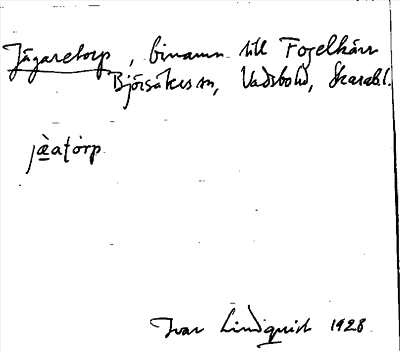 Jägaretorp, binamn till Fogelkärr
Björsäters sn, Vadsbo hd, Skarab. l.
jàaṭòrp
Ivar Lindquist 1928